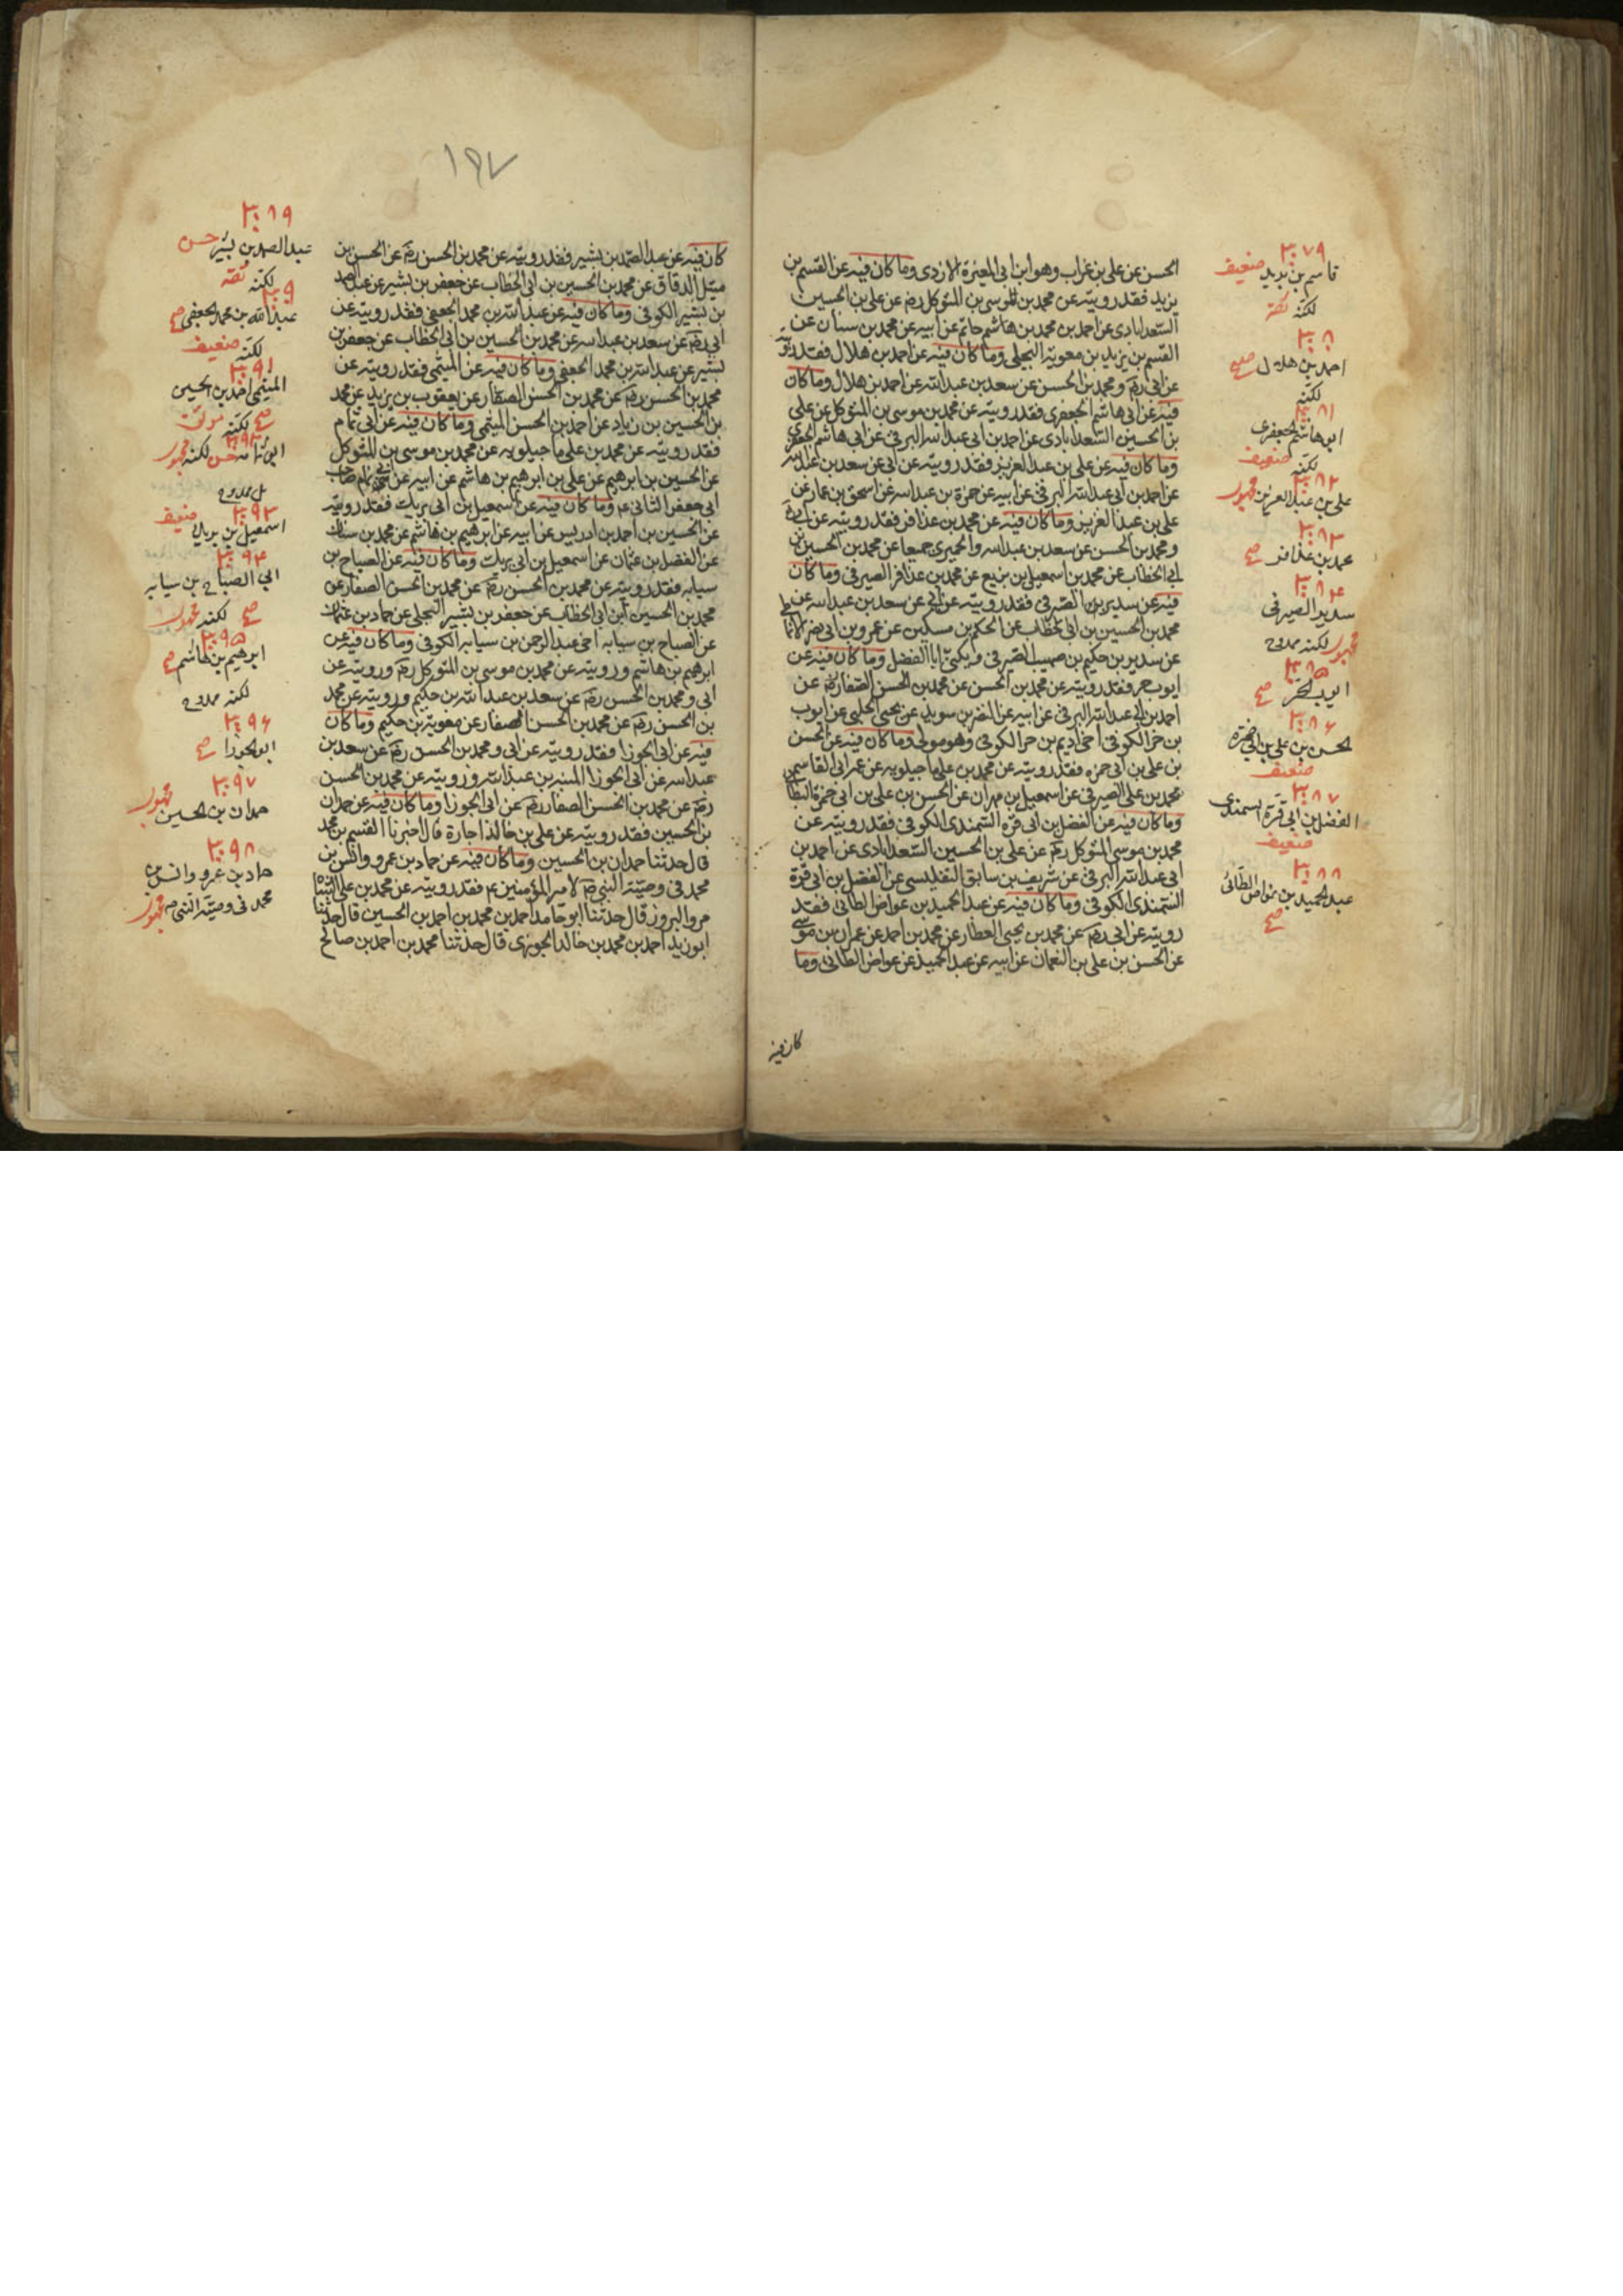 الحسن عن علي بن غراب وهو ابن ابي المغيرة الازدي وما كان فيه عن القسم بن
يزيد فقد رويته عن محمد بن موسي بن المتوكل رضه عن علي بن الحسين
السعدابادي عن احمد بن محمد بن هاشم عن ابيه عن محمد بن سنان عن
القسم بن يزيد بن معوية البجلي وما كان فيه عن احمد بن هلال فقد رويته
عن ابي رضه و محمد بن الحسن عن سعد بن عبدالله عن احمد بن هلال وما كان
فيه عن ابي هاشم الجعفري فقد رويته عن محمد بن موسى بن المتوكل عن علي
بن الحسين السعدابادي عن احمد بن ابي عبدالله البرقي عن ابي هاشم الجعفري
وما كان فيه عن علي بن عبد العزيز فقد رويته عن ابي عن سعد بن عبدالله
عن احمد بن ابي عبدالله البرقي عن ابيه عن حمزة بن عبدالله عن اسحق بن عمار عن
علي بن عبد العزيز وما كان فيه عن محمد بن عذافر فقد رويته عن ابي رضه
و محمد بن الحسن عن سعد بن عبدالله والحميري جميعا عن محمد بن الحسين بن
ابي الخطاب عن محمد بن اسمعيل بن بزيع عن محمد بن عذافر الصيرفي وما كان
فيه عن سدير الصيرفي فقد رويته عن ابي عن سعد بن عبدالله عن
محمد بن الحسين بن ابي الخطاب عن الحكم بن مسكين عن عمرو بن ابي نصر الانماطي
عن سدير بن حكيم بن صهيب الصيرفي و يكنى ابا الفضل وما كان فيه عن
ايوب حر فقد رويته عن محمد بن الحسن عن محمد بن الحسن الصفار رضه عن
احمد بن ابي عبدالله البرقي عن ابيه عن النضر بن سويد عن يحيى الحلبي عن ايوب
بن حر الكوفي اخي اديم بن حر الكوفي وهو مولى وما كان فيه عن الحسن
بن علي بن ابي حمزه فقد رويته عن محمد بن علي ماجيلويه عن عمه ابي القاسم عن
محمد بن علي الصيرفي عن اسمعيل بن مهران عن الحسن بن علي بن ابي حمزة البطائني
وما كان فيه عن الفضل بن ابي قرة السمندي الكوفي فقد رويته عن
محمد بن موسى المتوكل رضه عن علي بن الحسين السعدابادي عن احمد بن
ابي عبدالله البرقي عن شريف بن سابق التفليسي عن الفضل بن ابي قرة
السمندي الكوفي وما كان فيه عن عبد الحميد بن عواض الطائي فقد
رويته عن ابي رضه عن محمد بن يحيى العطار عن محمد بن احمد عن عمران بن موسى
عن الحسن بن علي بن النعمان عن ابيه عن عبد الحميد عن عواض الطائي وما
كان فيه
٣٠٧٩
قاسم بن يزيد ضعيف
لكنه ثقة
٣٠٨٠
احمد بن هلال صح
لكنه
٣٠٨١
ابو هاشم الجعفري
ضعيف
لكنه
٣٠٨٢
علي بن عبد العزيز مجهول
٣٠٨٣
محمد بن عذافر صح
٣٠٨٤
سدير الصيرفي
مجهول لكنه ممدوح
٣٠٨٥
ايوب الحر صح
٣٠٨٦
الحسن بن علي بن ابي حمزة
ضعيف
٣٠٨٧
الفضل بن ابي قرة السمندي
ضعيف
٣٠٨٨
عبد الحميد بن عواض الطائي
صح
١٩٧
كان فيه عن عبد الصمد بن بشير فقد رويته عن محمد بن الحسن رضه عن الحسن بن
متيل الدقاق عن محمد بن الحسين بن ابي الخطاب عن جعفر بن بشير عن عبد الصمد
بن بشير الكوفي وما كان فيه عن عبدالله بن محمد الجعفي فقد رويته عن
ابي رضه عن سعد بن عبدالله عن محمد بن الحسين بن ابي الخطاب عن جعفر بن
بشير عن عبدالله بن محمد الجعفي وما كان فيه عن الميثمي فقد رويته عن
محمد بن الحسن رضه عن محمد بن الحسن الصفار عن يعقوب بن يزيد عن محمد
بن الحسين بن زياد عن احمد بن الحسن الميثمي وما كان فيه عن ابي ثمامه
فقد رويته عن محمد بن علي ماجيلويه عن محمد بن موسى بن المتوكل
عن الحسين بن ابرهيم عن علي بن ابرهيم بن هاشم عن ابيه عن ابي ثمامه صاحب
ابي جعفر الثاني عم وما كان فيه عن اسمعيل بن ابي بريك فقد رويته
عن الحسين بن احمد بن ادريس عن ابيه عن ابرهيم بن هاشم عن محمد بن سنان
عن الفضل بن عثمان عن اسمعيل بن ابي بريك وما كان فيه عن الصباح بن
سيابه فقد رويته عن محمد بن الحسن رضه عن محمد بن الحسن الصفار عن
محمد بن الحسين ابن ابي الخطاب عن جعفر بن بشير البجلي عن حماد بن عثمان
عن الصباح بن سيابه اخي عبد الرحمن بن سيابه الكوفي وما كان فيه عن
ابرهيم بن هاشم و رويته عن محمد بن موسى بن المتوكل رضه و رويته عن
ابي و محمد بن الحسن رضه عن سعد بن عبدالله بن حكيم و رويته عن محمد
بن الحسن رضه عن محمد بن الحسن الصفار عن معوية بن حكيم وما كان
فيه عن ابي الجوزا فقد رويته عن ابي و محمد بن الحسن رضه عن سعد بن
عبدالله عن ابي الجوزا المنبه بن عبدالله و رويته عن محمد بن الحسن
رضه عن محمد بن الحسن الصفار رضه عن ابي الجوزا وما كان فيه عن حمدان
بن الحسين فقد رويته عن علي بن حاتم اجازة قال اخبرنا القسم بن محمد
قال حدثنا حمدان بن الحسين وما كان فيه عن حماد بن عمرو وانس بن
محمد في وصية النبي ص لامير المؤمنين عم فقد رويته عن محمد بن علي الشاه
مرو الروز قال حدثنا ابو حامد احمد بن محمد بن احمد بن الحسين قال حدثنا
ابو يزيد احمد بن محمد بن خالد الجوزي قال حدثنا محمد بن احمد بن صالح
٣٠٨٩
عبد الصمد بن بشير حسن
لكنه ثقه
٣٠٩٠
عبدالله بن محمد الجعفي صح
لكنه ضعيف
٣٠٩١
الميثمي احمد بن الحسن
صح لكنه موثق
٣٠٩٢
ابو ثمامه حسن لكنه مجهول
بل ممدوح
٣٠٩٣
اسمعيل بن بريك ضعيف
٣٠٩٤
ابي الصباح بن سيابه
صح لكنه مجهول
٣٠٩٥
ابرهيم بن هاشم صح
لكنه ممدوح
٣٠٩٦
ابو الجوزا صح
٣٠٩٧
حمدان بن الحسين مجهول
٣٠٩٨
حماد بن عمرو وانس بن
محمد في وصية النبي ص مجهول